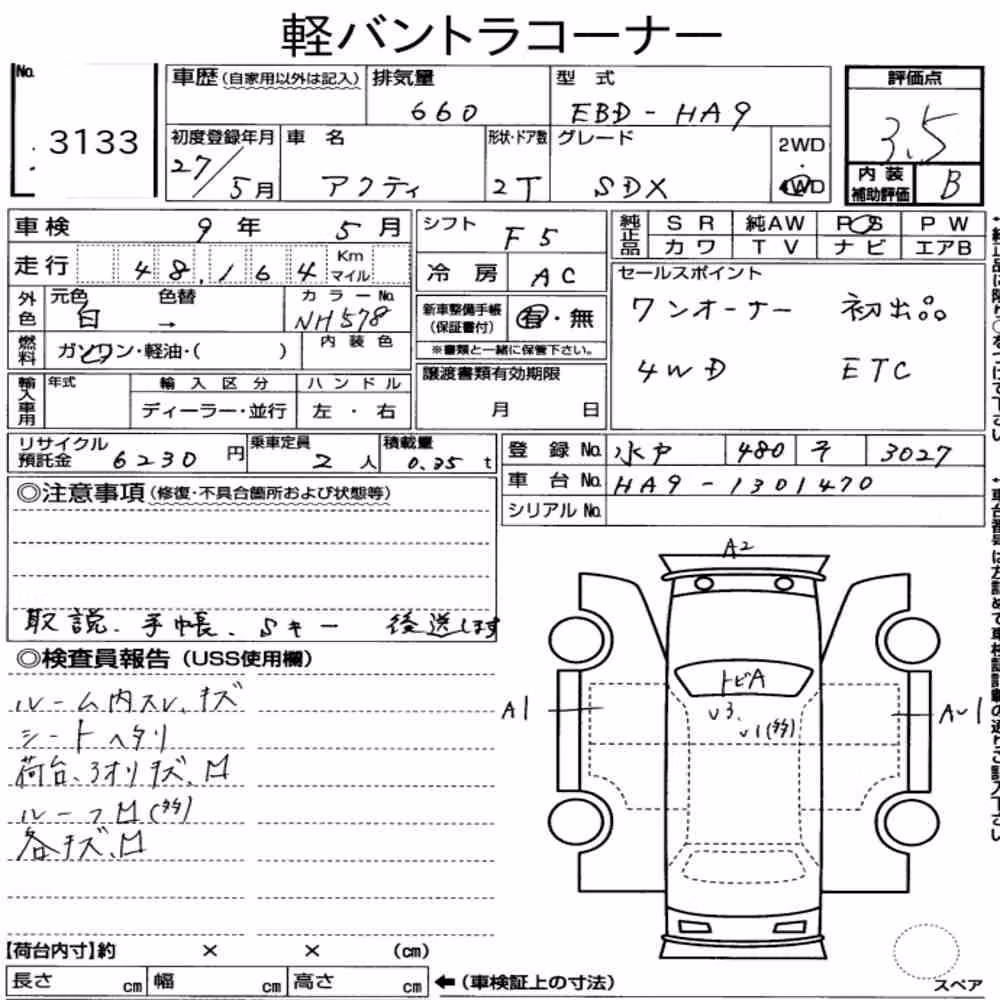 軽バントラコーナー
No. 3133
車歴(自家用以外は記入)
排気量 660
型式 EBD-HA9
評価点 3.5
初度登録年月 27/5月
車名 アクティ
形状・ドア数 2T
グレード SDX
2WD
4WD
内装補助評価 B
車検 9年 5月
走行 48,164 Km マイル
外色 元色 白 色替 →
カラーNo. NH578
燃料 ガソリン・軽油・( )
内装色
輸入車用 年式 輸入区分 ハンドル
ディーラー・並行 左・右
シフト F5
冷房 AC
新車整備手帳(保証書付) 有・無
※書類と一緒に保管下さい。
譲渡書類有効期限
月 日
純正品 SR 純AW PS PW
カワ TV ナビ エアB
セールスポイント
ワンオーナー 初出品
4WD ETC
リサイクル預託金 6230円
乗車定員 2人
積載量 0.35t
登録No. 水戸 480 そ 3027
車台No. HA9-1301470
シリアルNo.
◎注意事項(修復・不具合箇所および状態等)
取説、手帳、Sキー 後送します
◎検査員報告(USS使用欄)
ルーム内スレ、キズ
シートヘタリ
荷台、3オリキズ、凹
ルーフ凹(多)
各キズ、凹
A2
トビA
A1
U3.
U1(多)
AU1
【荷台内寸】約 × × (cm)
長さ cm 幅 cm 高さ cm ←(車検証上の寸法)
スペア